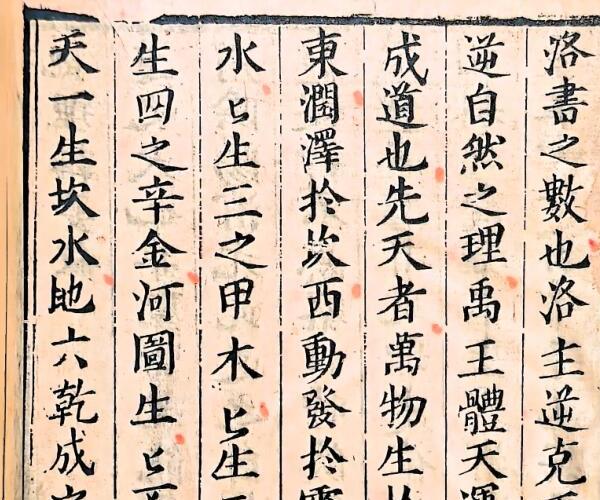 洛書之數也洛主逆克
逆自然之理禹王體天運
成道也先天者萬物生
東潤澤於坎西動發於
水匕生三之甲木匕生
生四之辛金河圖生匕
天一生坎水地六乾成